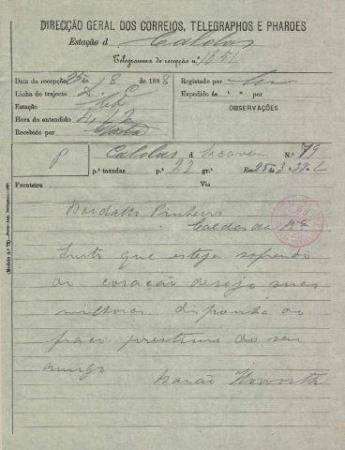 DIRECÇÃO GERAL DOS CORREIOS, TELEGRAPHOS E PHAROES
Estação d Caldas
Telegramma de recepção n.º 1651
Data da recepção 25 / 8 / 1898
Linha do trajecto
Estação
Hora do entendido
Recebido por
Registado por
Expedido ás " " por
OBSERVAÇÕES
P Caldas de Sacavem N.º 79
p.ª taxadas p.ª 22 gr. Em 25
Fronteira Via
Bordallo Pinheiro
Caldas da
Sinto que esteja soffrendo
do coração desejo suas
melhoras disponha do
fraco prestimo do seu
amigo
Barão Howorth